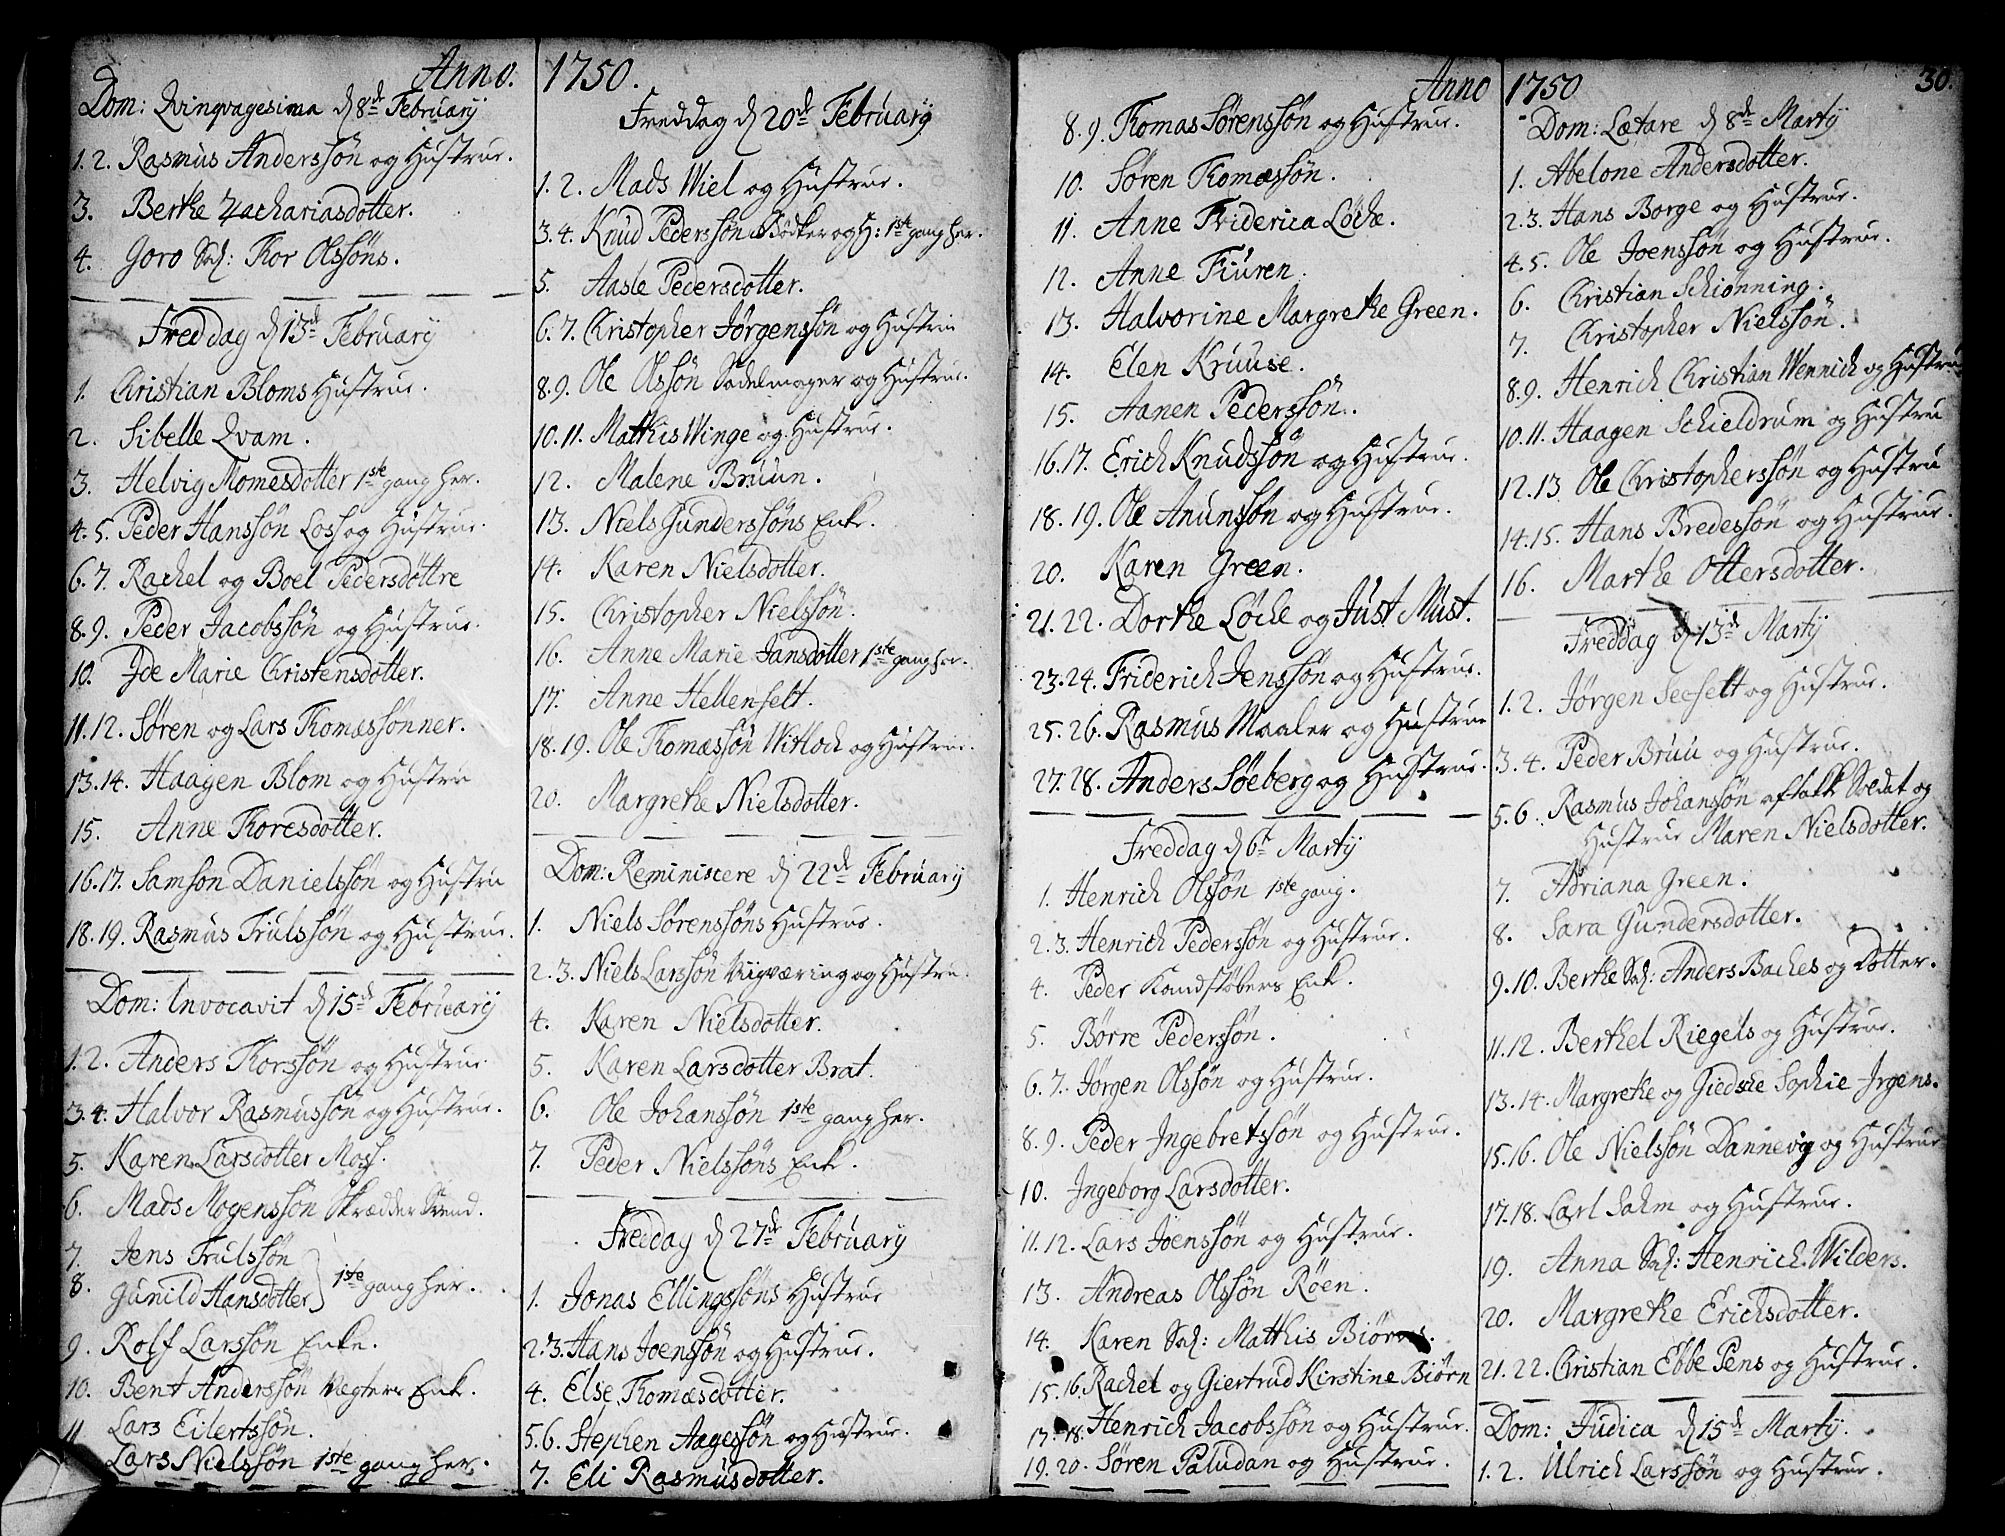 Anno.
Dom: Qvinqvagesima d 8de February
1. 2. Rasmus Anderssøn og Hustrue.
3. Berthe Zachariasdotter.
4. Goro Sal: Thor Olssøns.
Freddag d 13de February
1. Christian Bloms Hustrue.
2. Sibelle Qvam.
3. Helvig Momesdotter 1ste gang her.
4. 5. Peder Hanssøn Loss og Hustrue.
6. 7. Rachel og Boel Pedersdøttre
8. 9. Peder Jacobssøn og Hustrue.
10. Ide Marie Christensdotter.
11. 12. Søren og Lars Thomæssønner.
13. 14. Haagen Blom og Hustru
15. Anne Thoresdotter.
16. 17. Samson Danielssøn og Hustru
18. 19. Rasmus Trulssøn og Hustrue.
Dom: Invocavit d 15de February
1. 2. Anders Thorssøn og Hustrue
3. 4. Halvor Rasmussøn og Hustrue.
5. Karen Larsdotter Moss.
6. Mads Mogenssøn Skrædder Svend.
7. Jens Trulssøn
8. Gunild Hansdotter 1ste gang her.
9. Rolf Larssøn Enke.
10. Bent Anderssøn Vægters Enk.
11 Lars Eilertssøn.
Lars Nielssøn 1ste gang her.
1750.
Freddag d 20de February
1. 2. Mads Wiel og Hustrue.
3. 4. Knud Pederssøn Bødker og H: 1ste gang her.
5. Aasle Pedersdotter.
6. 7. Christopher Jørgenssøn og Hustrue
8. 9. Ole Olssøn Sadelmager og Hustrue.
10. 11. Mathis Winge og Hustrue.
12. Malene Bruun.
13. Niels Gunderssøns Enke.
14. Karen Nielsdotter.
15. Christopher Nielssøn.
16. Anne Marie Jansdotter 1ste gang her.
17. Anne Hellenfelt.
18. 19. Ole Thomæssøn Witloch og Hustrue.
20. Margrethe Nielsdotter.
Dom: Reminiscere d 22de February
1. Niels Sørenssøns Hustrue.
2. 3. Niels Larssøn Riigværing og Hustru.
4. Karen Nielsdotter.
5. Karen Larsdotter Brat.
6. Ole Johanssøn 1ste gang her.
7. Peder Nielssøns Enke.
Freddag d 27de February
1. Jonas Ellingssøns Hustrue
2. 3. Hans Joenssøn og Hustrue.
4. Else Thomæsdotter.
5. 6. Stephen Aagessøn og Hustrue.
7. Eli Rasmusdotter.
Anno
8. 9. Thomas Sørenssøn og Hustrue.
10. Søren Thomæssøn.
11. Anne Friderica Løche.
12. Anne Fiuren.
13. Halvorine Margrethe Green.
14. Elen Kruuse.
15. Aanen Pederssøn.
16. 17. Erich Knudssøn og Hustrue.
18. 19. Ole Anunssøn og Hustrue.
20. Karen Green.
21. 22. Dorthe Løche og Just Must.
23. 24. Friderich Jenssøn og Hustrue.
25. 26. Rasmus Maaler og Hustrue
27. 28. Anders Søeberg og Hustrue.
Freddag d 6te Marty
1. Henrich Olssøn 1ste gang.
2. 3. Henrich Pederssøn og Hustrue.
4. Peder Kandstøbers Enk.
5. Børre Pederssøn.
6. 7. Jørgen Olssøn og Hustrue.
8. 9. Peder Ingebretssøn og Hustrue.
10. Ingeborg Larsdotter.
11. 12. Lars Joenssøn og Hustrue.
13. Andreas Olssøn Røen.
14. Karen Sal: Matthis Biørns.
15. 16. Rachel og Giertrud Kirstine Biørn
17. 18. Henrich Jacobssøn og Hustrue.
19. 20. Søren Paludan og Hustrue.
1750
30.
Dom: Lætare d 8de Marty
1. Abelone Andersdotter.
2. 3. Hans Borge og Hustrue.
4. 5. Ole Joenssøn og Hustrue.
6. Christian Schiønning.
7. Christopher Nielssøn.
8. 9. Henrich Christian Wennich og Hustru
10. 11. Haagen Schieldrum og Hustru
12. 13 Ole Christopherssøn og Hustru
14. 15. Hans Bredessøn og Hustrue.
16. Marthe Ottersdotter.
Freddag d 13de Marty
1. 2. Jørgen Seefelt og Hustrue.
3. 4. Peder Bruu og Hustrue.
5. 6. Rasmus Johanssøn aftakk Soldat og
Hustrue Maren Nielsdotter.
7. Adriana Green.
8. Sara Gundersdotter.
9. 10. Berthe Sal: Anders Baches og Dotter.
11. 12. Berthel Riegels og Hustrue.
13. 14. Margrethe og Giedske Sophie Irgens.
15. 16. Ole Nielssøn Dannevig og Hustrue
17. 18. Carl Sahm og Hustrue.
19. Anna Sal: Henrich Wilders.
20. Margrethe Erichsdotter.
21. 22. Christian Ebbe Pens og Hustrue.
Dom: Judica d 15de Marty.
1. 2. Ulrich Larssøn og Hustrue.